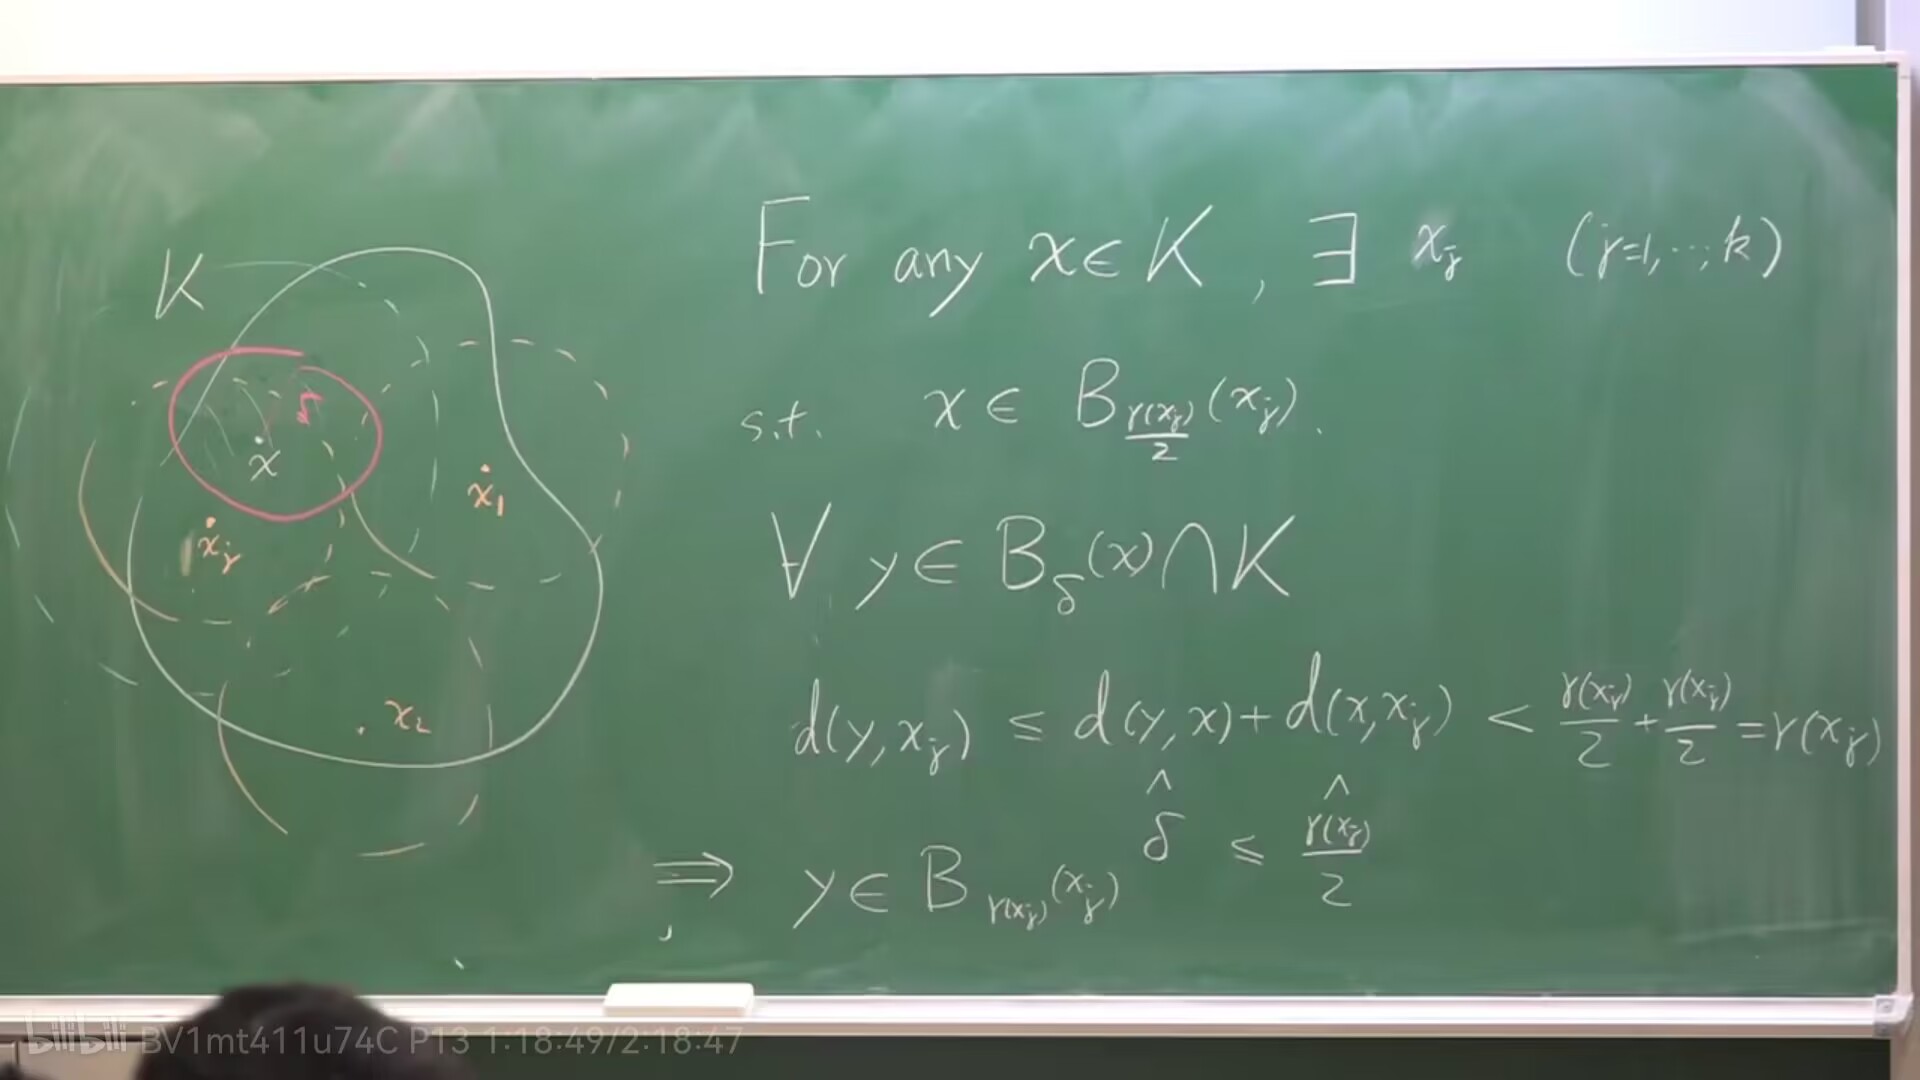 K
δ
x
x₁
x_j
x₂
For any x∈K, ∃ x_j (j=1,…,k)
s.t. x ∈ B_{r(x_j)/2}(x_j).
∀ y∈ B_δ(x)∩K
d(y,x_j) ≤ d(y,x)+d(x,x_j) < r(x_j)/2 + r(x_j)/2 = r(x_j)
∧ ∧
δ ≤ r(x_j)/2
⇒ y∈ B_{r(x_j)}(x_j)
bilibili BV1mt411u74C P13 1:18:49/2:18:47